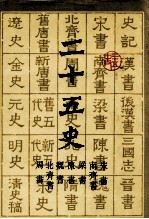 史記 漢書 後漢書 三國志 晉書
宋書 南齊書 梁書 陳書 魏書
二十五史
北齊書
舊唐書 新唐書 舊五代史 新五代史 宋史
遼史 金史 元史 明史 清史稿
宋書
南齊書
梁書
陳書
魏書
北齊書
周書